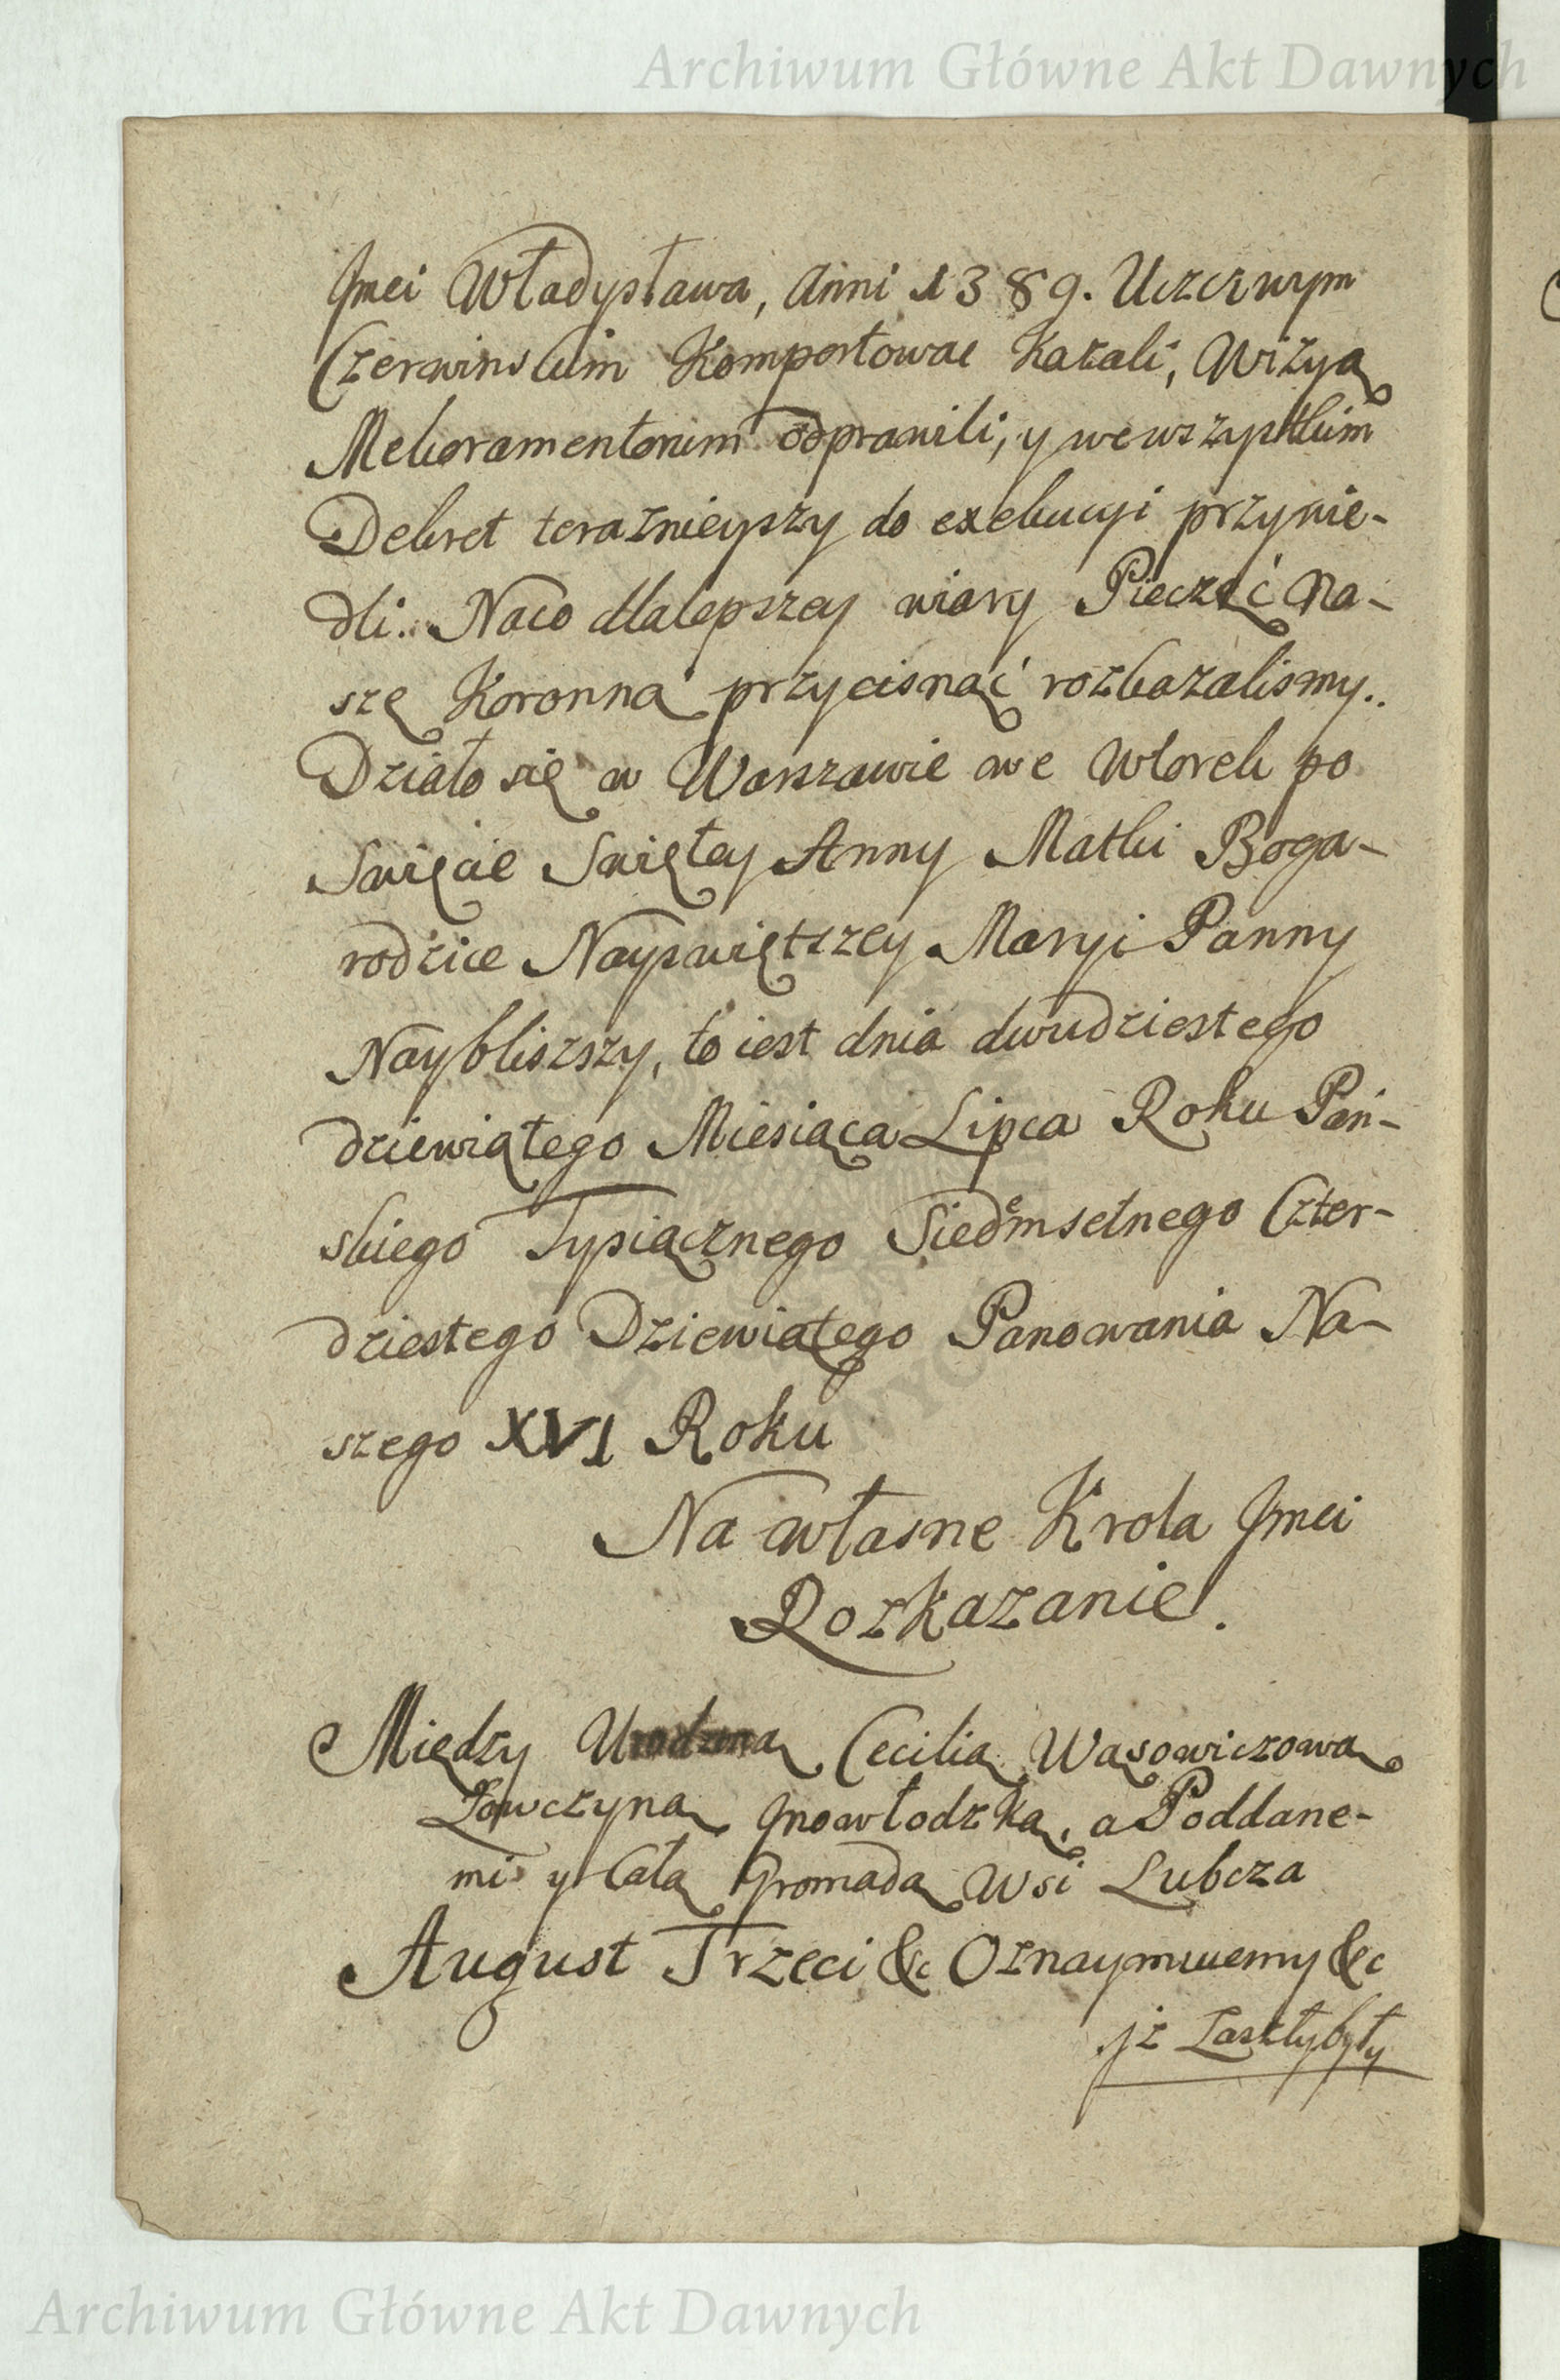 Archiwum Główne Akt Dawnych
Jmci Władysława, Anni 1389. Uczciwym
Czerwinskim Komportowac Kazali, Wizyą
Melioramentorum odprawili, y we wszystkim
Dekret teraznieyszy do exekucyi przywie-
dli. Naco dla lepszey wiary Pieczęć Na-
szę Koronną przycisnąć rozkazalismy.
Działo się w Warszawie we Wtorek po
Swięcie Swiętey Anny Matki Boga-
rodzice Nayswiętszey Maryi Panny
Naybliszszy, to iest dnia dwudziestego
dziewiątego Miesiąca Lipca Roku Pań-
skiego Tysiącznego Siedemsetnego Czter-
dziestego Dziewiątego Panowania Na-
szego XVI Roku
Na własne Krola Jmci
Rozkazanie.
Między Urodzoną Cecilią Wąsowiczową
Łowczyną Jnowłodzką, a Poddane-
mi y Całą Gromadą Wsi Lubcza
August Trzeci &c Oznaymuiemy &c
jż Zaszłybyły
Archiwum Główne Akt Dawnych